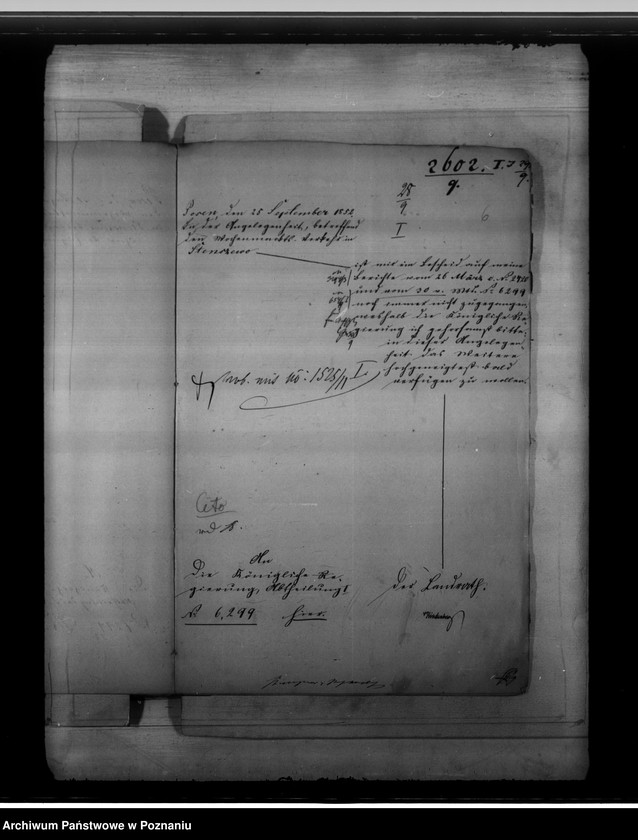 2602. I. 9
9.
28
9.
I
6
Posen, den 25 September 1852.
In der Angelegenheit, betreffend
den Wochenmarkts-Verkehr in
Stenszewo
ist mir ein Bescheid auf meine
Berichte vom 26 März c. N.
und vom 30 v. Mts. N. 6299
noch immer nicht zugegangen,
weshalb die Königliche Re-
gierung ich gehorsamst bitte,
in dieser Angelegen-
heit das Weitere
hochgeneigtest bald
verfügen zu wollen.
mit No: 1525/ I.
Cito
An
die Königliche Re-
gierung, Abtheilung I
N. 6,299 hier.
Der Landrath.
Archiwum Państwowe w Poznaniu